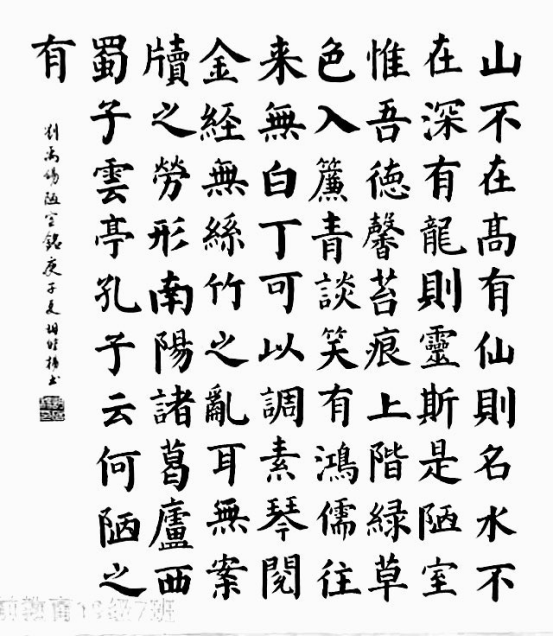 山不在髙有仙則名水不
在深有龍則靈斯是陋室
惟吾徳馨苔痕上階緑草
色入簾青談笑有鴻儒往
来無白丁可以調素琴閲
金経無絲竹之亂耳無案
牘之勞形南陽諸葛廬西
蜀子雲亭孔子云何陋之
有
劉禹錫陋室銘庚子夏胡書
前教育级7班